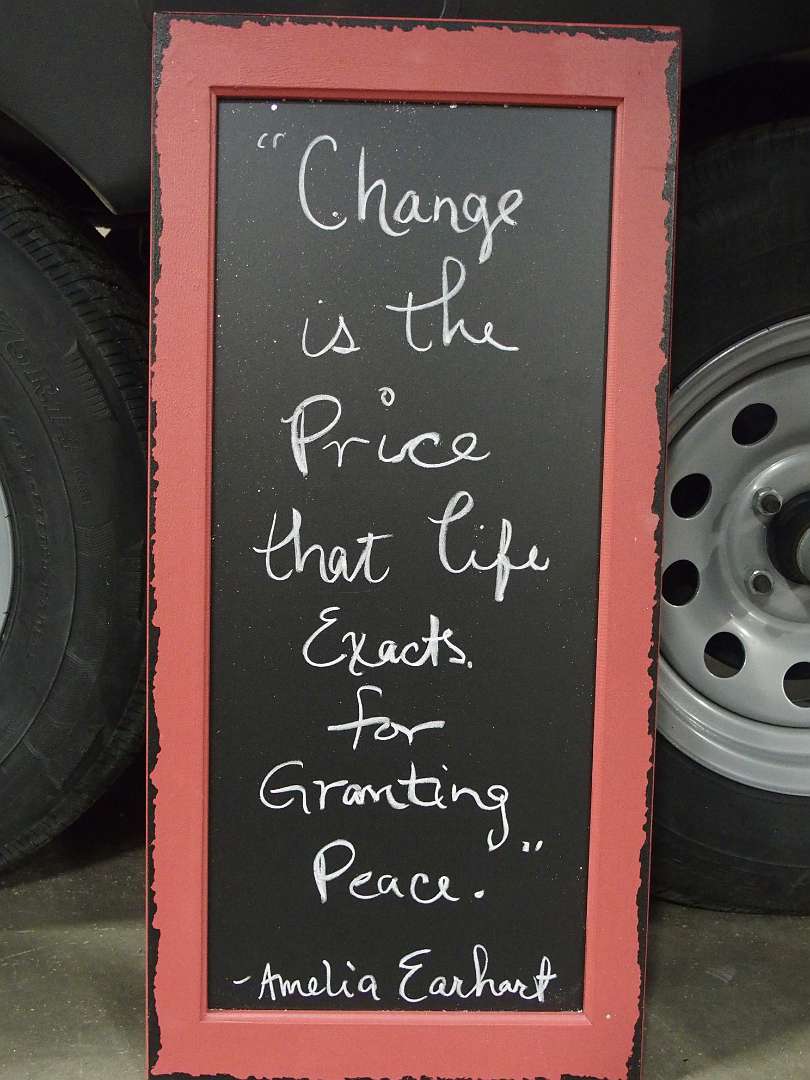 "Change
is the
Price
that life
Exacts.
for
Granting
Peace."
-Amelia Earhart